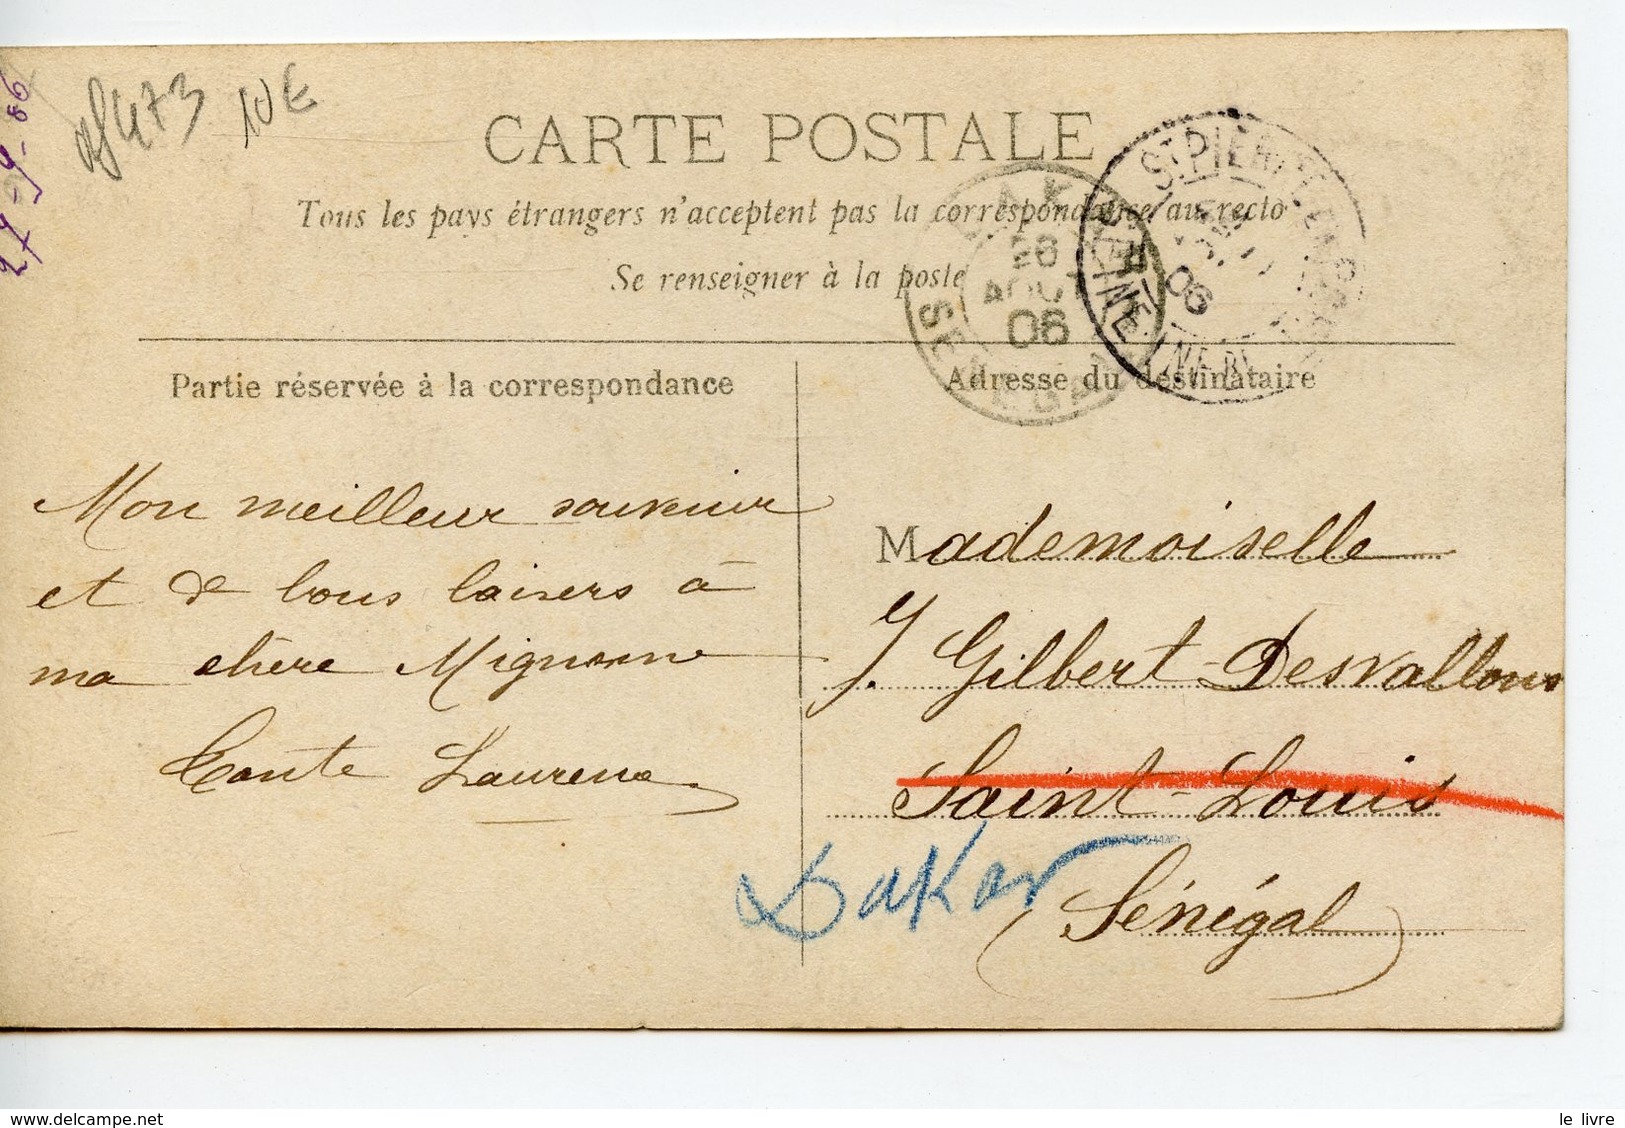 27-9-06
rf 473 10 €
CARTE POSTALE
Tous les pays étrangers n'acceptent pas la correspondance au recto
Se renseigner à la poste
DAKAR
26
AOUT
06
SENEGAL
St PIERRE
06
SEINE INFRE
Partie réservée à la correspondance
Adresse du destinataire
Mon meilleur souvenir
et de bons baisers à
ma chère Mignonne
Tante Laurence
Mademoiselle
J. Gilbert-Desvallons
Saint-Louis
Dakar
(Sénégal)
le livre